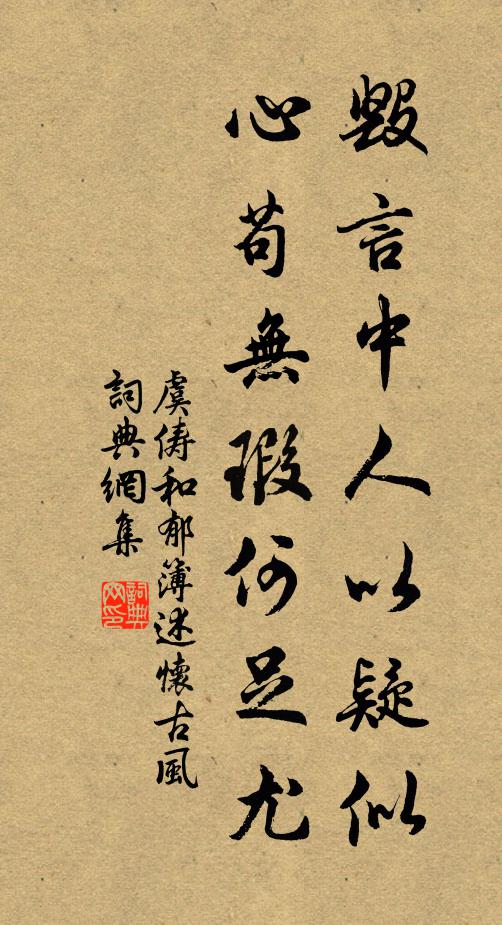 毀言中人以疑似
心苟無瑕何足尤
虞儔和郁簿述懷古風
詞典網集
詞典
网印